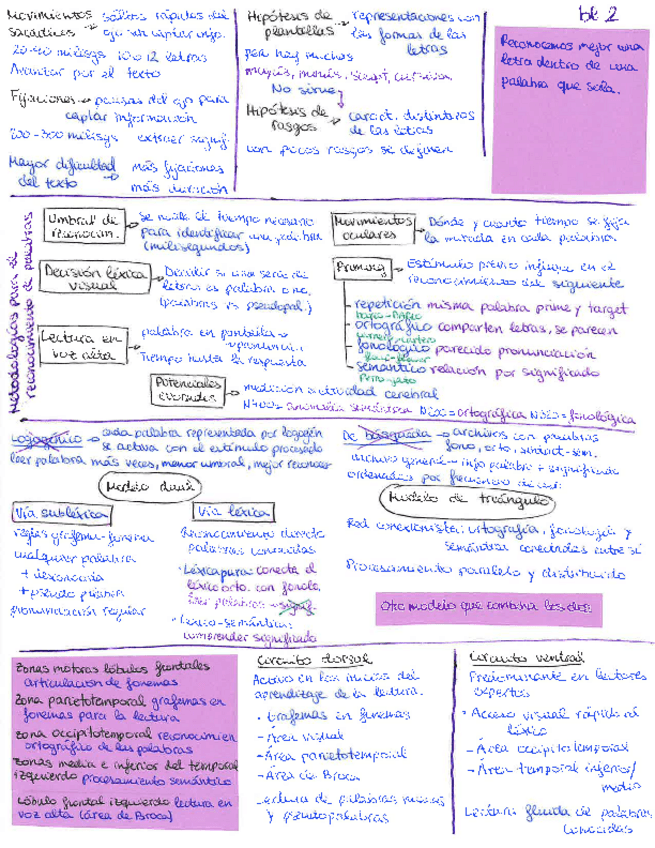 Movimientos sacádicos → saltos rápidos del ojo sin captar info.
10 o 12 letras
Avanzar por el texto
Fijaciones → pausas del ojo para captar información
200-300 milisgs extraer signif.
Mayor dificultad del texto → más fijaciones
más duración
Hipótesis de plantillas → representaciones con las formas de las letras
pero hay muchas
mayús, minús, script, cursiva
No sirve
Hipótesis de rasgos → caract. distintivas de las letras
con pocos rasgos se definen
bt 2
Reconocemos mejor una
letra dentro de una
palabra que sola.
Metodologías para el reconocimiento de palabras
Umbral de reconocim. → se mide el tiempo necesario
para identificar una palabra
(milisegundos)
Decisión léxica visual → Decidir si una serie de
letras es palabra o no.
(palabras vs pseudopal.)
Lectura en voz alta → palabra en pantalla →
pronunciar
Tiempo hasta la respuesta
Potenciales evocados → medición actividad cerebral
N400 = anomalía semántica N200 = ortográfica N320 = fonológica
Movimientos oculares → Dónde y cuanto tiempo se fija
la mirada en cada palabra.
Priming → Estímulo previo influye en el
reconocimiento del siguiente
- repetición misma palabra prime y target
- ortográfico comparten letras, se parecen
- fonológico parecido pronunciación
- semántico relación por significado
perro-gato
Logogénico → cada palabra representada por logogén
se activa con el estímulo procesado
leer palabra más veces, menor umbral, mejor reconocer
De búsqueda → archivos con palabras
ordenadas por frecuencia de uso
Modelo dual
Vía subléxica
reglas grafema-fonema
cualquier palabra
+ desconocida
+ pseudo palabra
pronunciación regular
Vía léxica
Reconocimiento directo
palabras conocidas
· Léxica pura: conecta el
léxico orto. con fonolo.
leer palabras → signif.
· Léxico-semántica:
comprender significado
Modelo de triángulo
Red conexionista: ortografía, fonología y
semántica conectadas entre sí
Procesamiento paralelo y distribuido
Otro modelo que combina los dos.
Zonas motoras lóbulos frontales
articulación de fonemas
Zona parietotemporal grafemas en
fonemas para la lectura
Zona occipitotemporal reconocimien
ortográfico de las palabras
Zonas media e inferior del temporal
izquierdo procesamiento semántico
Lóbulo frontal izquierdo lectura en
voz alta (área de Broca)
Circuito dorsal
Activo en los inicios del
aprendizaje de la lectura.
· Grafemas en fonemas
- Área visual
- Área parietotemporal
- Área de Broca
Lectura de palabras nuevas
y pseudopalabras
Circuito ventral
Predominante en lectores
expertos
· Acceso visual rápido al
léxico
- Área occipitotemporal
- Área temporal inferior/
medio
Lectura fluida de palabras
conocidas